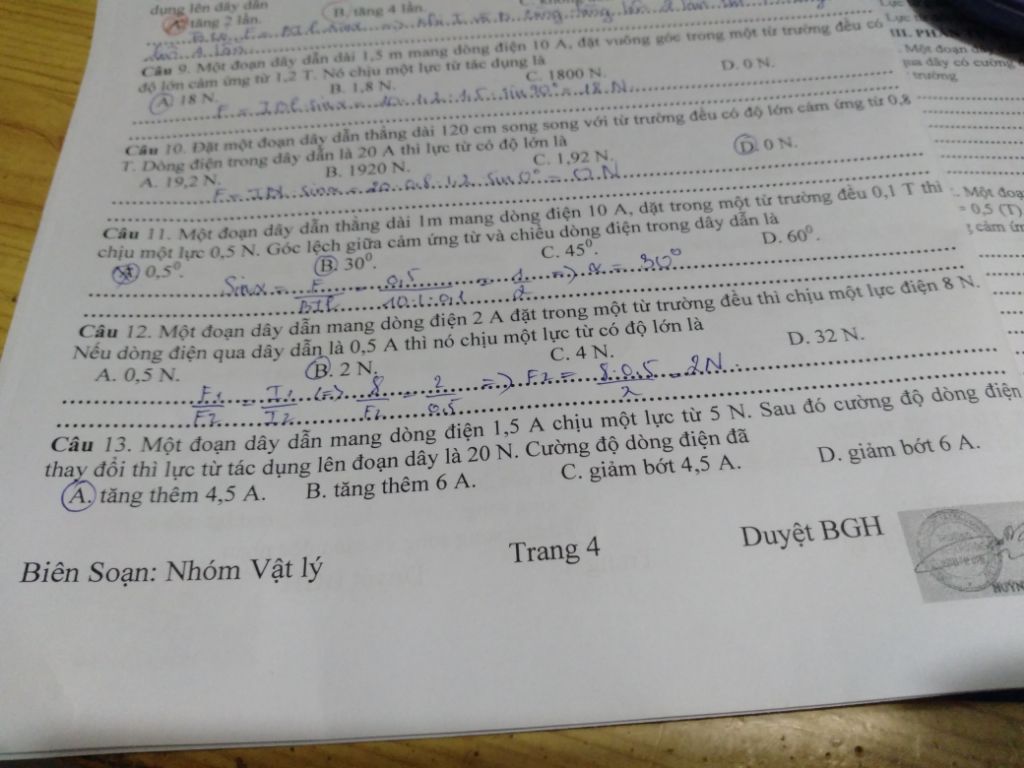 dụng lên dây dẫn
A. tăng 2 lần. B. tăng 4 lần.
Câu 9. Một đoạn dây dẫn dài 1,5 m mang dòng điện 10 A, đặt vuông góc trong một từ trường đều có
độ lớn cảm ứng từ 1,2 T. Nó chịu một lực từ tác dụng là
A. 18 N. B. 1,8 N. C. 1800 N. D. 0 N.
F = IBl.sinα = 10.1,2.1,5.sin90° = 18 N
Câu 10. Đặt một đoạn dây dẫn thẳng dài 120 cm song song với từ trường đều có độ lớn cảm ứng từ 0,8
T. Dòng điện trong dây dẫn là 20 A thì lực từ có độ lớn là
A. 19,2 N. B. 1920 N. C. 1,92 N. D. 0 N.
F = IBl.sinα = 20.0,8.1,2.sin0° = 0 N
Câu 11. Một đoạn dây dẫn thẳng dài 1m mang dòng điện 10 A, dặt trong một từ trường đều 0,1 T thì
chịu một lực 0,5 N. Góc lệch giữa cảm ứng từ và chiều dòng điện trong dây dẫn là
A. 0,5⁰. B. 30⁰. C. 45⁰. D. 60⁰.
Sinα = F/BIl = 0,5/10.1.0,1 = 1/2 => α = 30⁰
Câu 12. Một đoạn dây dẫn mang dòng điện 2 A đặt trong một từ trường đều thì chịu một lực điện 8 N.
Nếu dòng điện qua dây dẫn là 0,5 A thì nó chịu một lực từ có độ lớn là
A. 0,5 N. B. 2 N. C. 4 N. D. 32 N.
F1/F2 = I1/I2 (=) 8/F2 = 2/0,5 =) F2 = 8.0,5/2 = 2N
Câu 13. Một đoạn dây dẫn mang dòng điện 1,5 A chịu một lực từ 5 N. Sau đó cường độ dòng điện
thay đổi thì lực từ tác dụng lên đoạn dây là 20 N. Cường độ dòng điện đã
A. tăng thêm 4,5 A. B. tăng thêm 6 A. C. giảm bớt 4,5 A. D. giảm bớt 6 A.
Biên Soạn: Nhóm Vật lý Trang 4 Duyệt BGH
Lực từ
Một đoạn
qua dây có cường
từ trường
Một đoạn
= 0,5 (T)
cảm ứn